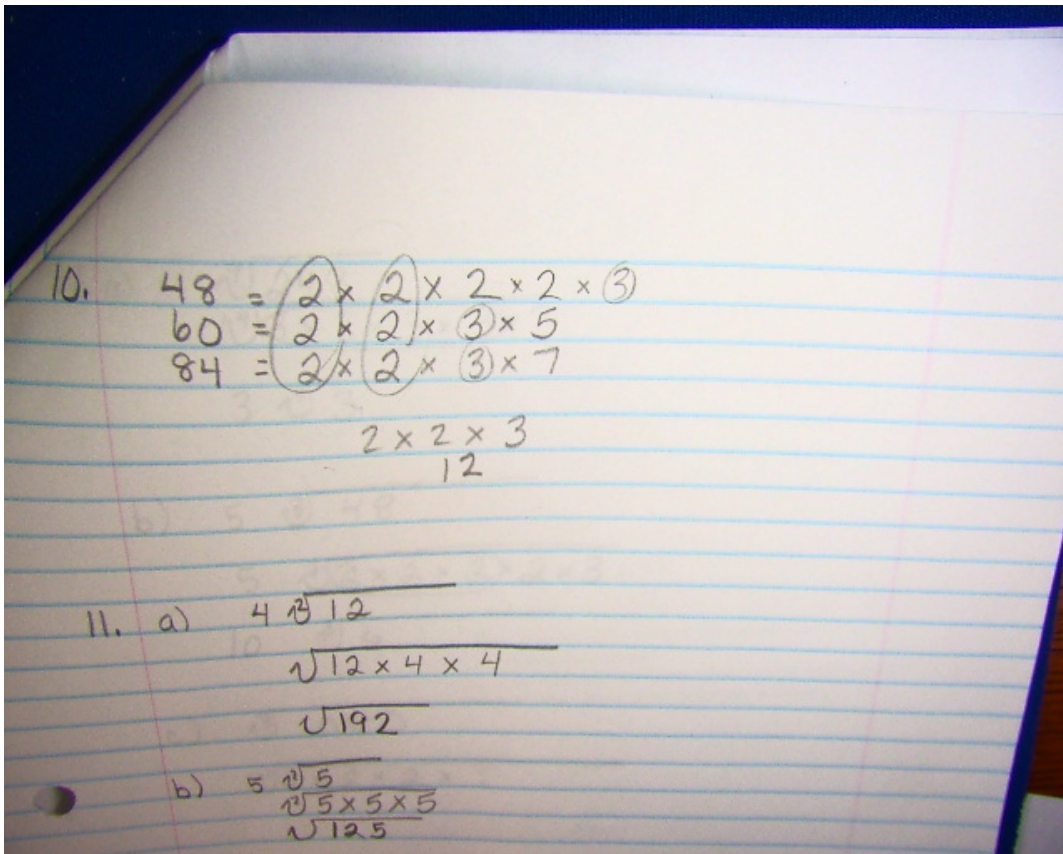 10. 48 = 2 × 2 × 2 × 2 × 3
60 = 2 × 2 × 3 × 5
84 = 2 × 2 × 3 × 7
2 × 2 × 3
12
11. a) 4 ²√12
√12 × 4 × 4
√192
b) 5 ²√5
²√5 × 5 × 5
√125